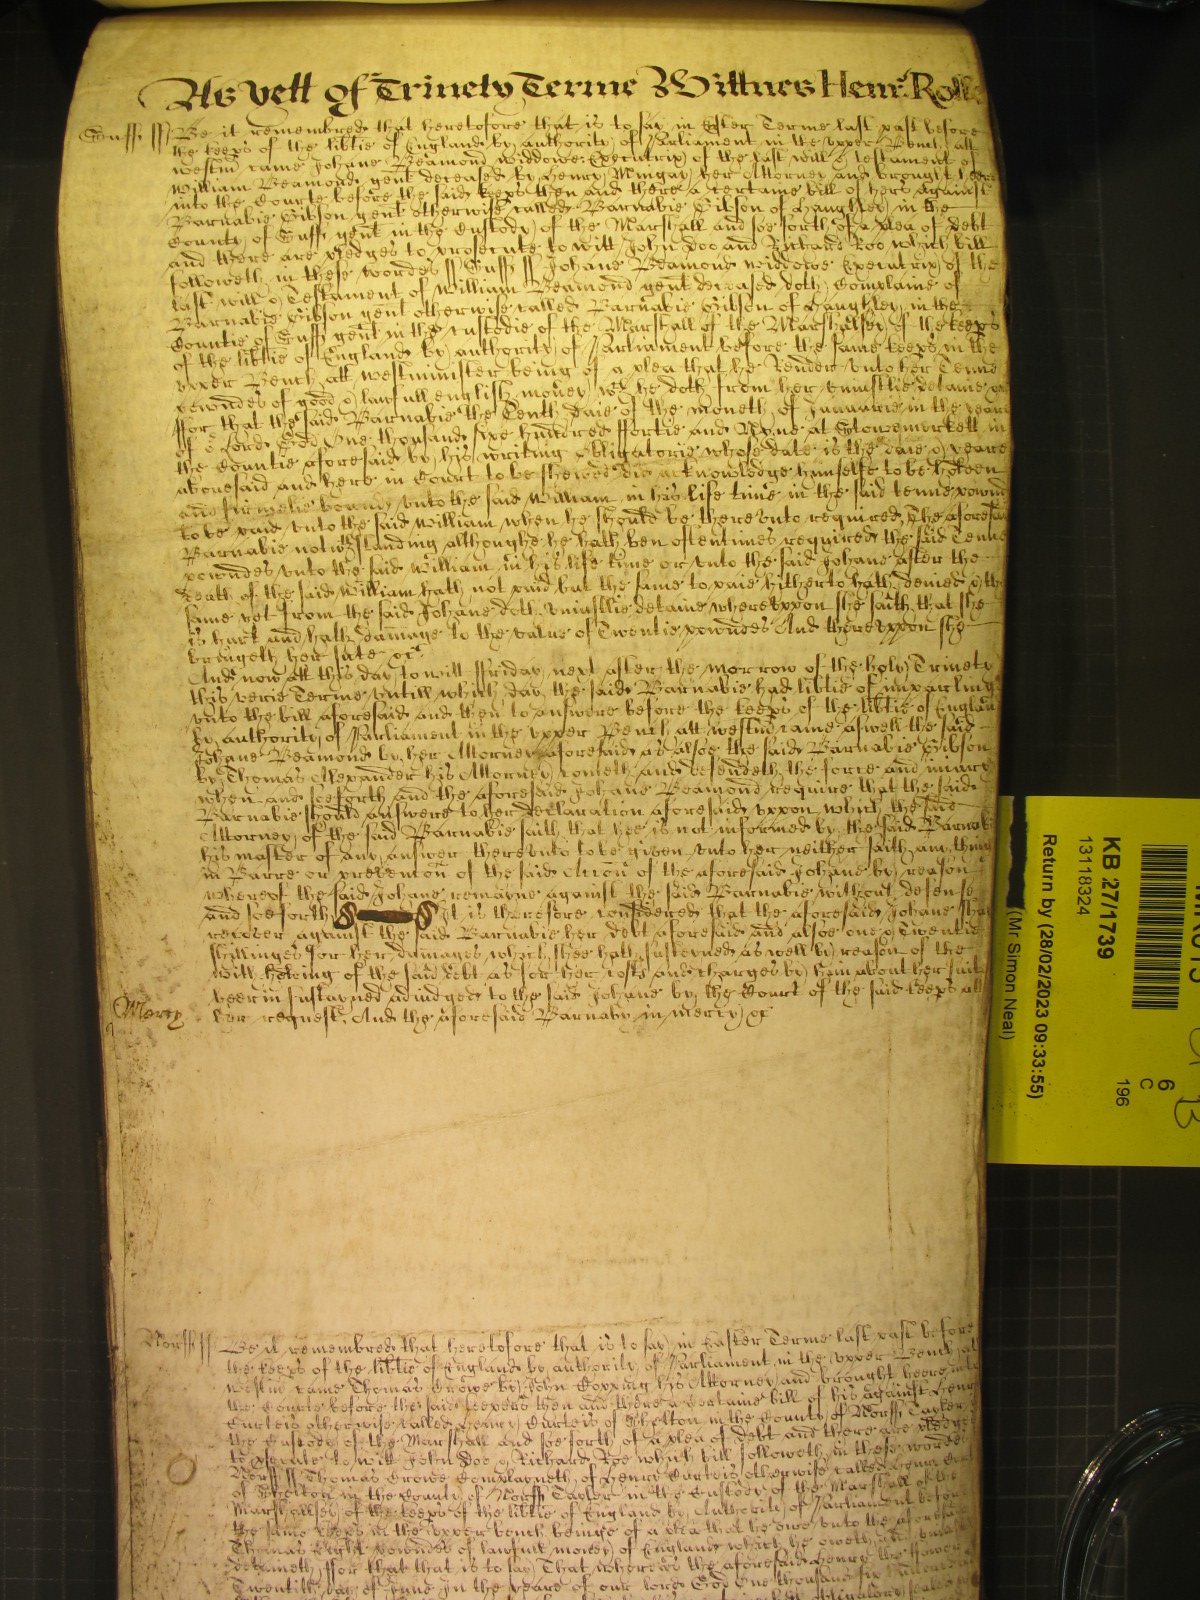 As yett of Trinety Terme Wittnes Henr: Rolle
Suff ss Be it remembred that heretofore that is to say in Ester Terme last past before
the keeps of the libtie of England by authority of Parliament in the upper Bench att
westm came Johane Beamond widdowe Executrix of the last will & testament of
William Beamond gent deceased by Henry Mingay her Attorney and brought heere
into the Courte before the said keeps then and there a certaine bill of hers against
Barnabie Gibson gent otherwise called Barnabie Gibson of Haughley in the
County of Suff gent in the Custody of the Marshall and soe forth of a plea of debt
and there are pledges to prosecute to witt John Doo and Richard Roo which bill
followeth in these wordes ss Suff ss Johane Beamond widdowe Executrix of the
last will & Testament of William Beamond gent deceased doth Complaine of
Barnabie Gibson gent otherwise called Barnabie Gibson of Haughley in the
Countie of Suff gent in the custodie of the Marshall of the Marshalsey of the keeps
of the libtie of England by authority of Parliament before the same keeps in the
upper Bench att westminister being of a plea that he Render unto her Tenne
powndes of good & lawfull english money wch he doth from her uniustlie detaine
ffor that the said Barnabie the Tenth daie of the moneth of Januarie in the yeare
of or Lord God One thousand sixe hundred ffortie and Nyne at Stowemerkett in
the Countie aforesaid by his writing Obligatorie whose date is the daie & yeare
abovesaid and here in Court to be shewed did acknowledge himselfe to be holden
and firmelie bound unto the said William in his life time in the said tenne pownd
to be paid unto the said William when he should be thereunto required The aforesaid
Barnabie notwthstanding althoughe he hath ben oftentimes required the said Tenne
powndes unto the said William in his life tyme or unto the said Johane after the
death of the said William hath not paid but the same to paie hitherto hath denied & the
same yet from the said Johane doth uniustlie detaine whereuppon she saith that she
is hurt and hath damage to the value of Twentie powndes And thereuppon she
bringeth her sute &c
And now att this day to witt ffriday next after the morrow of the holy Trinety
this verie Terme untill which day the said Barnabie had libtie of imparling
unto the bill aforesaid and then to answere before the keeps of the libtie of England
by authority of Parliament in the upper Bench att westm came aswell the said
Johane Beamond by her Attorney aforesaid as alsoe the said Barnabie Gibson
by Thomas Alexander his Attorney cometh and defendeth the force and iniury
when and soeforth and the aforesaid Johane Beamond require that the said
Barnabie should answere to her declaration aforesaid uppon which the said
Attorney of the said Barnabie saith that hee is not informed by the said Barnabie
his master of any answer thereunto to be given unto her neither saith any thing
in Barre or prevention of the said Action of the aforesaid Johane by reason
whereof the said Johane remayne against the said Barnabie without defense
and soe forth It is therefore considered that the aforesaid Johane shall
recover against the said Barnabie her debt aforesaid and alsoe one & Twentie
shillinges for her damages which shee hath susteyned aswell by reason of the
with holding of the said debt as for her costs and charges by him about her suite
heerin sustayned adiudged to the said Johane by the Court of the said keeps att
Mercy her request And the aforesaid Barnaby in mercy &c
Norff ss Be it remembred that heretofore that is to say in Easter Terme last past before
the keeps of the libtie of England by authority of Parliament in the upper Bench at
westm came Thomas Crowe by John Copping his Attorney and brought heere into
the Courte before the said keepers then and there a certaine bill of his against Henry
Curteis otherwise called Henry Curteis of Shelton in the County of Norff Taylor in
the Custody of the Marshall and soe forth of a plea of debt and there are pledges
to prosecute to witt John Doo & Richard Roe which bill followeth in these wordes
Norff ss Thomas Crowe Complayneth of Henry Curteis otherwise called Henry
of Shelton in the County of Norff Taylor in the Custody of the Marshall of the
Marshallsey of the keeps of the libtie of England by Authority of Parliament before
the same keeps in the upper bench beinge of a plea that he owe unto the aforesaid
Thomas Eight powndes of lawfull money of England which he oweth and
detaineth ffor that that is to say That whereas the aforesaid Henry the
Twentith day of June In the yeare of our lord God One thousand six hundred
KB 27/1739
13118324
Return by (28/02/2023 09:33:55)
(Mr Simon Neal)
6
C
196